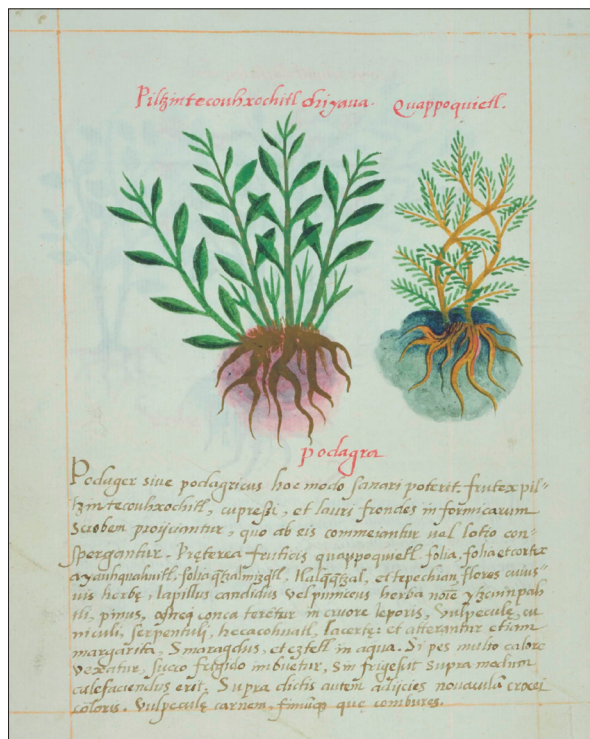 Piltzintecouhxochitl chiyaua. Quappoquietl.
Podagra
Podager siue podagricus hoc modo sanari poterit. frutex pil=
tzintecouhxochitl, cupreßi, et lauri frondes in formicarum
scrobem proijciantur, quo ab eis commeiantur uel lotio con=
spergantur. Preterea fruticis quappoquietl folia, folia et cortex
ayauhquahuitl, folia quetzalmizquitl, tlalquequetzal, et tepechian, flores cuius=
uis herbę, lapillus candidus vel puniceus herba noīe ytzcuinpah
tli, pinus, conca terētur in cruore leporis, Vulpeculę, cu
niculi, serpentuli, hecacohuatl, lacertę: et atterantur etiam
margarita, Smaragdus, et eztetl in aqua. Si pes multo calore
vexatur, succo frigido imbuetur, Sin frigescit supra modum
calefaciendus erit. Supra dictis autem adijcies nouaculā crocei
coloris. Vulpeculę carnem, fimūq; que combures.